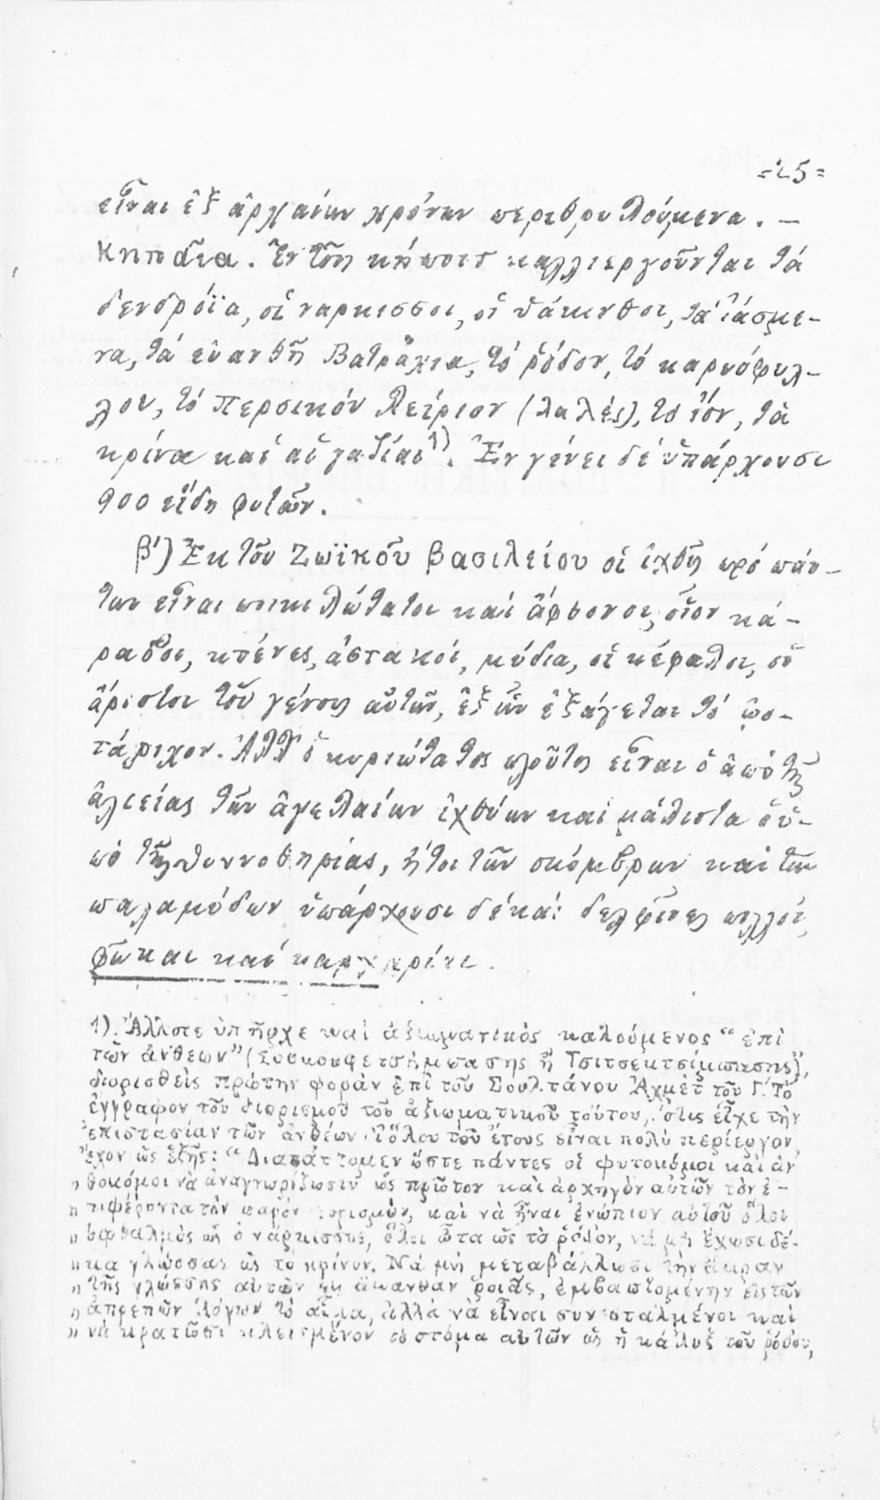 =25=
εἶναι ἐξ ἀρχαίων χρόνων περιθρυλούμενα. —
Κηπαῖα. Ἐν τοῖς κήποις καλλιεργοῦνται τὰ
δενδρόϊα, οἱ ναρκισσοι, οἱ ὑάκινθοι, τὰ ἰάσμε-
να, τὰ εὐανθῆ Βατράχια, τὸ ῥόδον, τὸ καρυόφυλ-
λον, τὸ Περσικὸν λείριον (λαλές), τὸ ἴον, τὰ
κρίνα καὶ αἱ γαζίαι 1). Ἐν γένει δὲ ὑπάρχουσι
900 εἴδη φυτῶν.
β') Ἐκ τοῦ Ζωϊκοῦ βασιλείου οἱ ἰχθῦς πρὸ πάν-
των εἶναι ποικιλώτατοι καὶ ἄφθονοι, οἷον κά-
ραβοι, κτένες, ἀστακοί, μύδια, οἱ κέφαλοι, οἱ
ἄριστοι τοῦ γένους αὐτῶν, ἐξ ὧν ἐξάγεται τὸ ὠο-
τάριχον. Ἀλλ' ὁ κυριώτατος πλοῦτος εἶναι ὁ ἀπὸ τῆς
ἁλιείας τῶν ἀγελαίων ἰχθύων καὶ μάλιστα ὁ ἀ-
πὸ τῆς θυννοθηρίας, ἤτοι τῶν σκόμβρων καὶ τῶν
παλαμύδων ὑπάρχουσι δὲ καὶ δελφῖνες πολλοί,
φῶκαι καὶ καρχαρίαι.
1). Ἄλλοτε ὑπῆρχε καὶ ἀξιωματικὸς καλούμενος "ἐπὶ
τῶν ἀνθέων" ( ἢ Τσιτσεκτσίμπασης),
διορισθεὶς πρώτην φορὰν ἐπὶ τοῦ Σουλτάνου Ἀχμὲτ τοῦ Γ'. Τὸ
ἔγγραφον τοῦ διορισμοῦ τοῦ ἀξιωματικοῦ τούτου, ὅστις εἶχε τὴν
ἐπιστασίαν τῶν ἀνθέων δι' ὅλου τοῦ ἔτους εἶναι πολὺ περίεργον,
ἔχον ὡς ἑξῆς: "Διατάττομεν ὥστε πάντες οἱ φυτοκόμοι καὶ ἀν
" θοκόμοι νὰ ἀναγνωρίζωσιν ὡς πρῶτον καὶ ἀρχηγὸν αὐτῶν τὸν ἐ-
" πιφέροντα τὸν παρόν διορισμόν, καὶ νὰ ἦναι ἐνώπιον αὐτοῦ ὅλοι
" ὀφθαλμὸς ὡς ὁ νάρκισσος, ὅλοι ὦτα ὡς τὸ ῥόδον, νὰ μὴ ἔχωσι δέ-
" κα γλώσσας ὡς τὸ κρίνον. Νὰ μὴ μεταβάλλωσι τὴν ἄκραν
" τῆς γλώσσης αὐτῶν εἰς ἄκανθαν ῥοιᾶς, ἐμβαπτομένην εἰς τῶν
" ἀπρεπῶν λόγων τὸ αἷμα, ἀλλὰ νὰ εἶναι συνεσταλμένοι καὶ
" νὰ κρατῶσι κλεισμένον τὸ στόμα αὐτῶν ὡς ἡ κάλυξ τοῦ ῥόδου,